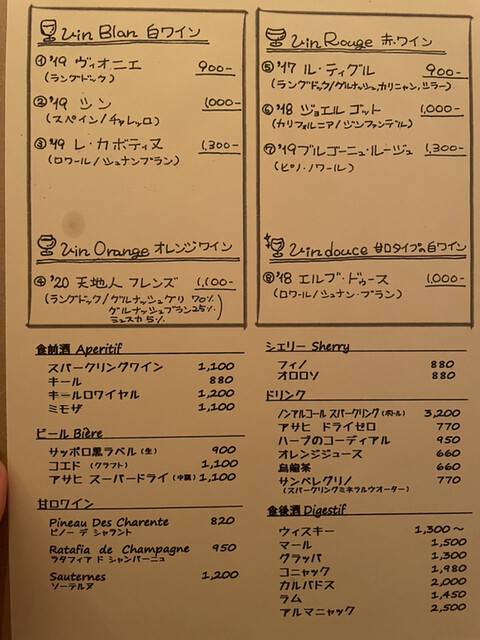 Vin Blan 白ワイン
① '19 ヴィオニエ 900-
(ラングドック)
② '19 ツン 1,000-
(スペイン/チャレッロ)
③ '19 レ・カボティヌ 1,300-
(ロワール/シュナンブラン)
Vin Orange オレンジワイン
④ '20 天地人 フレンズ 1,100-
(ラングドック/グルナッシュグリ 70%
グルナッシュブラン25%
ミュスカ 5%)
Vin Rouge 赤ワイン
⑤ '17 ル・ティグル 900-
(ラングドック/グルナッシュ,カリニャン,シラー)
⑥ '18 ジョエル ゴット 1,000-
(カリフォルニア/ジンファンデル)
⑦ '19 ブルゴーニュ・ルージュ 1,300-
(ピノ・ノワール)
Vin douce 甘口タイプの白ワイン
⑧ '18 エルブ・ドゥース 1,000-
(ロワール/シュナン・ブラン)
食前酒 Aperitif
スパークリングワイン 1,100
キール 880
キールロワイヤル 1,200
ミモザ 1,100
ビール Bière
サッポロ黒ラベル (生) 900
コエド (クラフト) 1,100
アサヒ スーパードライ (中瓶) 1,100
甘口ワイン
Pineau Des Charente 820
ピノー デ シャラント
Ratafia de Champagne 950
ラタフィア ド シャンパーニュ
Sauternes 1,200
ソーテルヌ
シェリー Sherry
フィノ 880
オロロソ 880
ドリンク
ノンアルコール スパークリング (ボトル) 3,200
アサヒ ドライゼロ 770
ハーブのコーディアル 950
オレンジジュース 660
烏龍茶 660
サンペレグリノ 770
(スパークリングミネラルウオーター)
食後酒 Digestif
ウィスキー 1,300～
マール 1,500
グラッパ 1,300
コニャック 1,980
カルバドス 2,000
ラム 1,450
アルマニャック 2,500